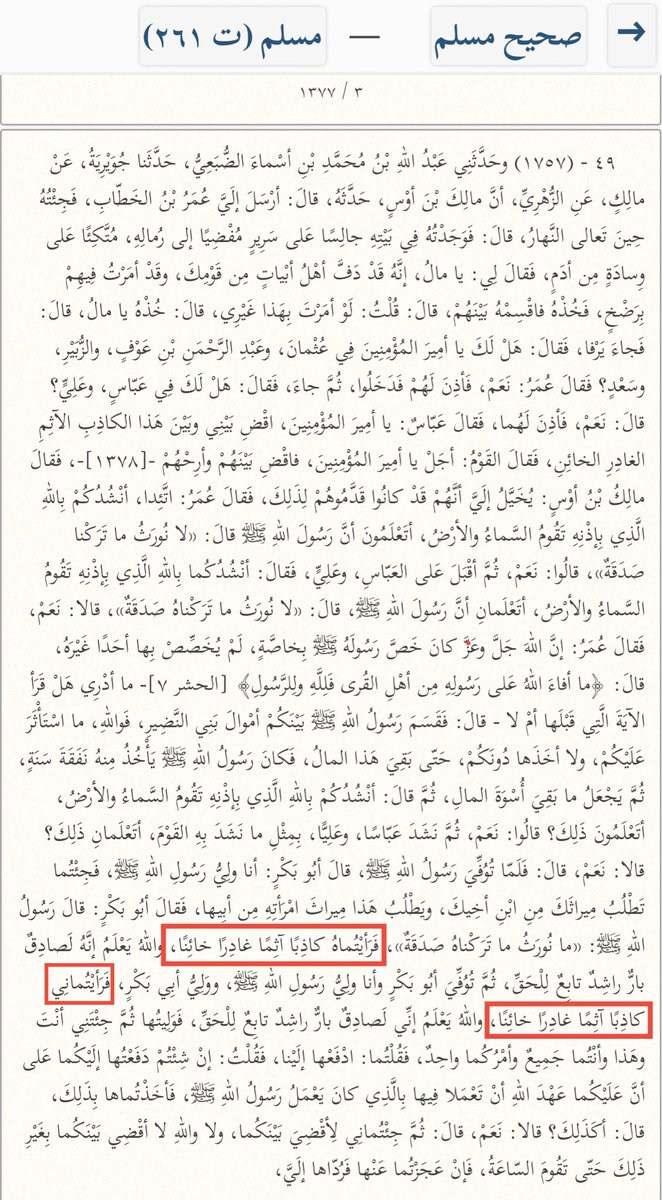 صحيح مسلم — مسلم (ت ٢٦١)
٣ / ١٣٧٧
٤٩ - (١٧٥٧) وحَدَّثَنِي عَبْدُ اللهِ بْنُ مُحَمَّدِ بْنِ أسْماءَ الضُّبَعِيُّ، حَدَّثَنا جُوَيْرِيَةُ، عَنْ
مالِكٍ، عَنِ الزُّهْرِيِّ، أنَّ مالِكَ بْنَ أوْسٍ، حَدَّثَهُ، قالَ: أرْسَلَ إلَيَّ عُمَرُ بْنُ الخَطّابِ، فَجِئْتُهُ
حِينَ تَعالى النَّهارُ، قالَ: فَوَجَدْتُهُ فِي بَيْتِهِ جالِسًا عَلى سَرِيرٍ مُفْضِيًا إلى رُمالِهِ، مُتَّكِئًا عَلى
وِسادَةٍ مِن أدَمٍ، فَقالَ لِي: يا مالُ، إنَّهُ قَدْ دَفَّ أهْلُ أبْياتٍ مِن قَوْمِكَ، وقَدْ أمَرْتُ فِيهِمْ
بِرَضْخٍ، فَخُذْهُ فاقْسِمْهُ بَيْنَهُمْ، قالَ: قُلْتُ: لَوْ أمَرْتَ بِهَذا غَيْرِي، قالَ: خُذْهُ يا مالُ، قالَ:
فَجاءَ يَرْفا، فَقالَ: هَلْ لَكَ يا أمِيرَ المُؤْمِنِينَ فِي عُثْمانَ، وعَبْدِ الرَّحْمَنِ بْنِ عَوْفٍ، والزُّبَيْرِ،
وسَعْدٍ؟ فَقالَ عُمَرُ: نَعَمْ، فَأذِنَ لَهُمْ فَدَخَلُوا، ثُمَّ جاءَ، فَقالَ: هَلْ لَكَ فِي عَبّاسٍ، وعَلِيٍّ؟
قالَ: نَعَمْ، فَأذِنَ لَهُما، فَقالَ عَبّاسٌ: يا أمِيرَ المُؤْمِنِينَ، اقْضِ بَيْنِي وبَيْنَ هَذا الكاذِبِ الآثِمِ
الغادِرِ الخائِنِ، فَقالَ القَوْمُ: أجَلْ يا أمِيرَ المُؤْمِنِينَ، فاقْضِ بَيْنَهُمْ وأرِحْهُمْ -[١٣٧٨]-، فَقالَ
مالِكُ بْنُ أوْسٍ: يُخَيَّلُ إلَيَّ أنَّهُمْ قَدْ كانُوا قَدَّمُوهُمْ لِذَلِكَ، فَقالَ عُمَرُ: اتَّئِدا، أنْشُدُكُمْ بِاللهِ
الَّذِي بِإذْنِهِ تَقُومُ السَّماءُ والأرْضُ، أتَعْلَمُونَ أنَّ رَسُولَ اللهِ ﷺ قالَ: «لا نُورَثُ ما تَرَكْنا
صَدَقَةٌ»، قالُوا: نَعَمْ، ثُمَّ أقْبَلَ عَلى العَبّاسِ، وعَلِيٍّ، فَقالَ: أنْشُدُكُما بِاللهِ الَّذِي بِإذْنِهِ تَقُومُ
السَّماءُ والأرْضُ، أتَعْلَمانِ أنَّ رَسُولَ اللهِ ﷺ، قالَ: «لا نُورَثُ ما تَرَكْناهُ صَدَقَةٌ»، قالا: نَعَمْ،
فَقالَ عُمَرُ: إنَّ اللهَ جَلَّ وعَزَّ كانَ خَصَّ رَسُولَهُ ﷺ بِخاصَّةٍ، لَمْ يُخَصِّصْ بِها أحَدًا غَيْرَهُ،
قالَ: ﴿ما أفاءَ اللهُ عَلى رَسُولِهِ مِن أهْلِ القُرى فَلِلَّهِ ولِلرَّسُولِ﴾ [الحشر ٧]- ما أدْرِي هَلْ قَرَأ
الآيَةَ الَّتِي قَبْلَها أمْ لا - قالَ: فَقَسَمَ رَسُولُ اللهِ ﷺ بَيْنَكُمْ أمْوالَ بَنِي النَّضِيرِ، فَواللهِ، ما اسْتَأْثَرَ
عَلَيْكُمْ، ولا أخَذَها دُونَكُمْ، حَتّى بَقِيَ هَذا المالُ، فَكانَ رَسُولُ اللهِ ﷺ يَأْخُذُ مِنهُ نَفَقَةَ سَنَةٍ،
ثُمَّ يَجْعَلُ ما بَقِيَ أُسْوَةَ المالِ، ثُمَّ قالَ: أنْشُدُكُمْ بِاللهِ الَّذِي بِإذْنِهِ تَقُومُ السَّماءُ والأرْضُ،
أتَعْلَمُونَ ذَلِكَ؟ قالُوا: نَعَمْ، ثُمَّ نَشَدَ عَبّاسًا، وعَلِيًّا، بِمِثْلِ ما نَشَدَ بِهِ القَوْمَ، أتَعْلَمانِ ذَلِكَ؟
قالا: نَعَمْ، قالَ: فَلَمّا تُوُفِّيَ رَسُولُ اللهِ ﷺ، قالَ أبُو بَكْرٍ: أنا ولِيُّ رَسُولِ اللهِ ﷺ، فَجِئْتُما
تَطْلُبُ مِيراثَكَ مِنَ ابْنِ أخِيكَ، ويَطْلُبُ هَذا مِيراثَ امْرَأتِهِ مِن أبِيها، فَقالَ أبُو بَكْرٍ: قالَ رَسُولُ
اللهِ ﷺ: «ما نُورَثُ ما تَرَكْناهُ صَدَقَةٌ»، فَرَأيْتُماهُ كاذِبًا آثِمًا غادِرًا خائِنًا، واللهُ يَعْلَمُ إنَّهُ لَصادِقٌ
بارٌّ راشِدٌ تابِعٌ لِلْحَقِّ، ثُمَّ تُوُفِّيَ أبُو بَكْرٍ وأنا ولِيُّ رَسُولِ اللهِ ﷺ، ووَلِيُّ أبِي بَكْرٍ، فَرَأيْتُمانِي
كاذِبًا آثِمًا غادِرًا خائِنًا، واللهُ يَعْلَمُ إنِّي لَصادِقٌ بارٌّ راشِدٌ تابِعٌ لِلْحَقِّ، فَوَلِيتُها ثُمَّ جِئْتَنِي أنْتَ
وهَذا وأنْتُما جَمِيعٌ وأمْرُكُما واحِدٌ، فَقُلْتُما: ادْفَعْها إلَيْنا، فَقُلْتُ: إنْ شِئْتُمْ دَفَعْتُها إلَيْكُما عَلى
أنَّ عَلَيْكُما عَهْدَ اللهِ أنْ تَعْمَلا فِيها بِالَّذِي كانَ يَعْمَلُ رَسُولُ اللهِ ﷺ، فَأخَذْتُماها بِذَلِكَ،
قالَ: أكَذَلِكَ؟ قالا: نَعَمْ، قالَ: ثُمَّ جِئْتُمانِي لِأقْضِيَ بَيْنَكُما، ولا واللهِ لا أقْضِي بَيْنَكُما بِغَيْرِ
ذَلِكَ حَتّى تَقُومَ السّاعَةُ، فَإنْ عَجَزْتُما عَنْها فَرُدّاها إلَيَّ،